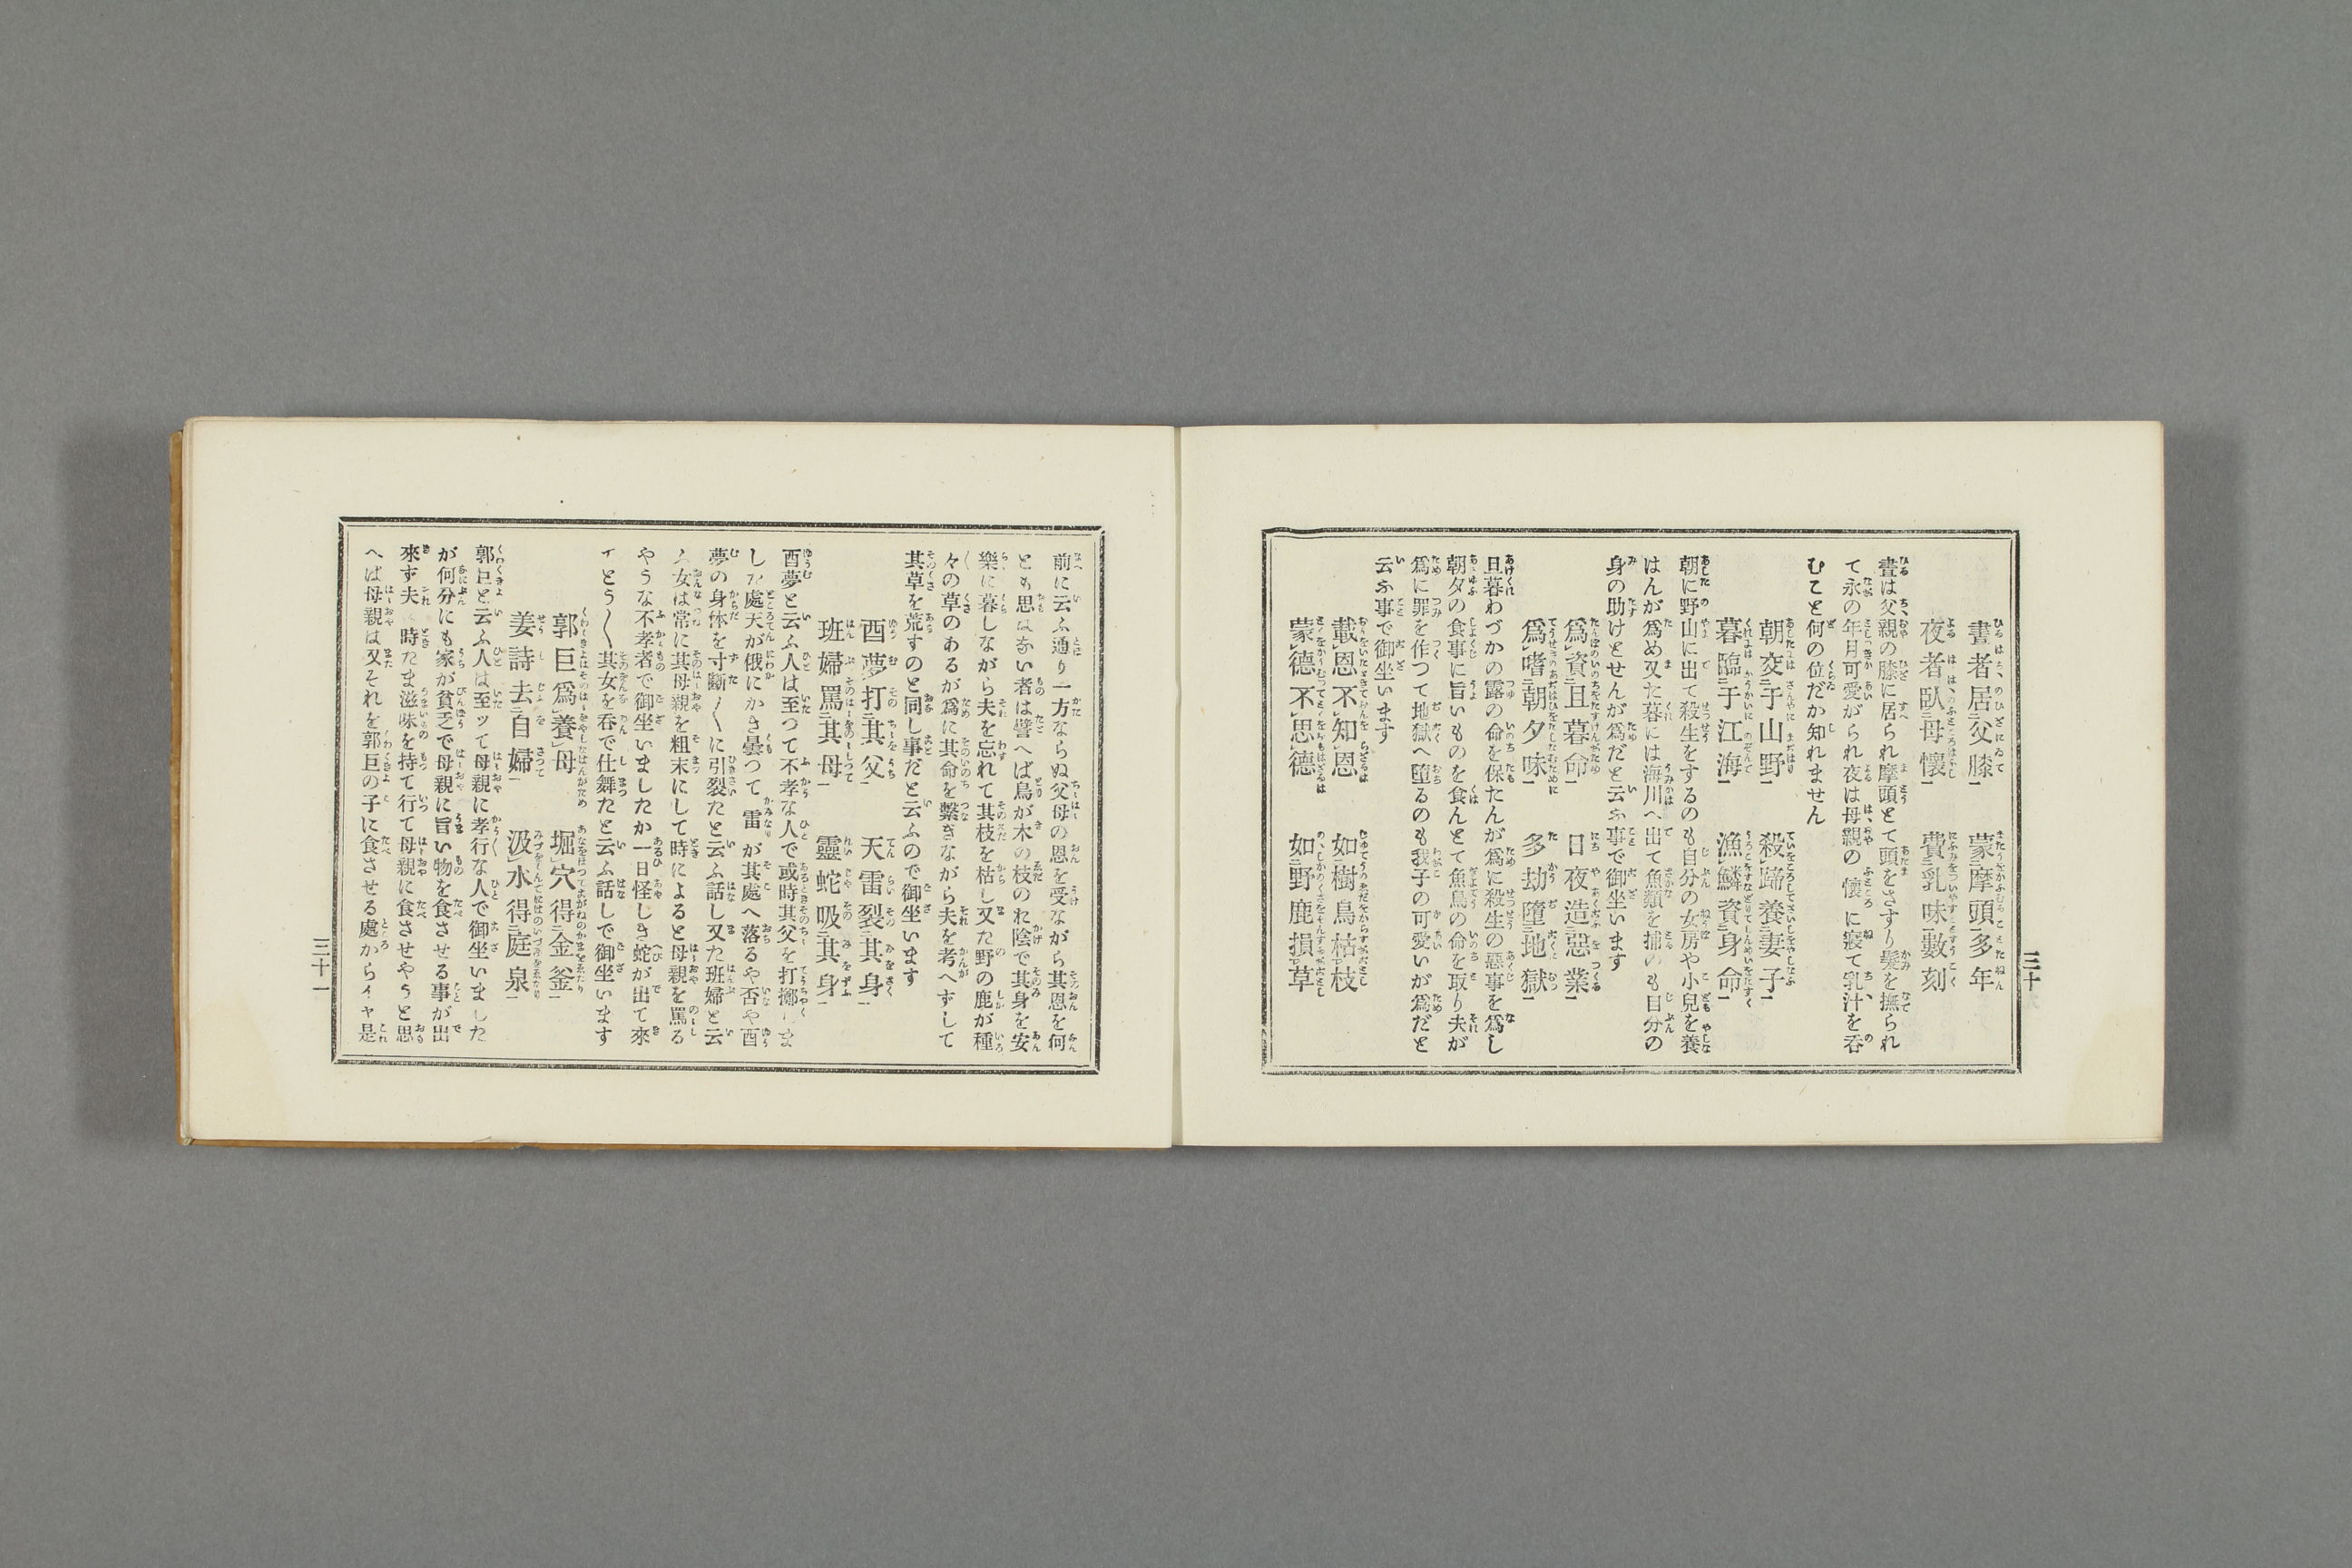 晝者居父膝 蒙摩頭多年
夜者臥母懷 費乳味數刻
晝は父親の膝に居られ摩頭とて頭をさすり髮を撫られ
て永の年月可愛がられ夜は母親の懷に寢て乳汁を呑
むこと何の位だか知れません
朝交于山野 殺蹄養妻子
暮臨于江海 漁鱗資身命
朝に野山に出て殺生をするのも自分の女房や小兒を養
はんが爲め又た暮には海川へ出て魚類を捕のも自分の
身の助けとせんが爲だと云ふ事で御坐います
爲資旦暮命 日夜造惡業
爲嗜朝夕味 多劫墮地獄
旦暮わづかの露の命を保たんが爲に殺生の惡事を爲し
朝夕の食事に旨いものを食んとて魚鳥の命を取り夫が
爲に罪を作つて地獄へ墮るのも我子の可愛いが爲だと
云ふ事で御坐います
戴恩不知恩 如樹鳥枯枝
蒙德不思德 如野鹿損草
三十
前に云ふ通り一方ならぬ父母の恩を受ながら其恩を何
とも思はない者は譬へば鳥が木の枝のれ陰で其身を安
樂に暮しながら夫を忘れて其枝を枯し又た野の鹿が種
々の草のあるが爲に其命を繫ぎながら夫を考へずして
其草を荒すのと同し事だと云ふので御坐います
酉夢打其父 天雷裂其身
班婦罵其母 靈蛇吸其身
酉夢と云ふ人は至つて不孝な人で或時其父を打擲しま
した處天が俄にかき曇つて雷が其處へ落るや否や酉
夢の身体を寸斷〳〵に引裂たと云ふ話し又た班婦と云
ふ女は常に其母親を粗末にして時によると母親を罵る
やうな不孝者で御坐いましたか一日怪しき蛇が出て來
てとう〳〵其女を呑で仕舞たと云ふ話しで御坐います
郭巨爲養母 堀穴得金釜
姜詩去自婦 汲水得庭泉
郭巨と云ふ人は至ッて母親に孝行な人で御坐いました
が何分にも家が貧乏で母親に旨い物を食させる事が出
來ず夫 時たま滋味を持て行て母親に食させやうと思
へば母親は又それを郭巨の子に食させる處からイヤ是
三十一